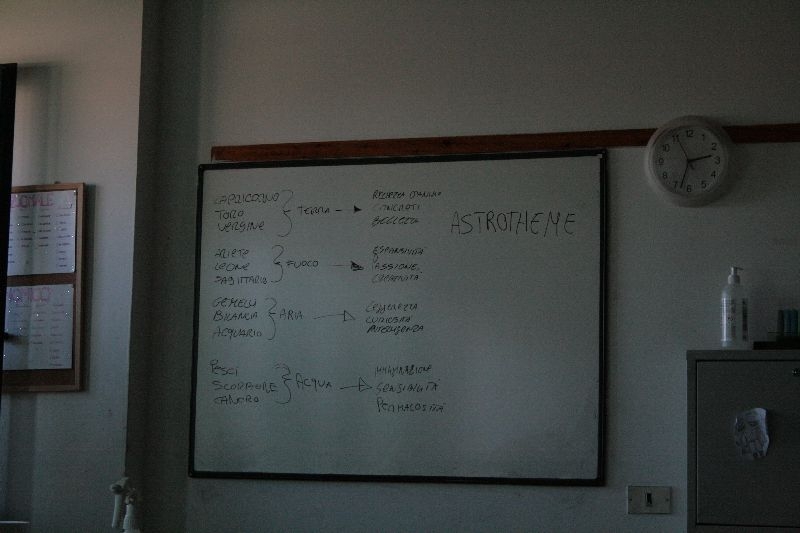 CAPRICORNO
TORO
VERGINE
TERRA
RICCHEZZA D'ANIMO
CONCRETI
BELLEZZA
ASTROTHEME
ARIETE
LEONE
SAGITTARIO
FUOCO
ESPANSIVITÀ
PASSIONE
CREATIVITÀ
GEMELLI
BILANCIA
ACQUARIO
ARIA
LEGGEREZZA
CURIOSITÀ
INTELLIGENZA
PESCI
SCORPIONE
CANCRO
ACQUA
IMMAGINAZIONE
SENSIBILITÀ
PERMALOSITÀ
12
11
10
9
8
7
6
5
4
3
2
1